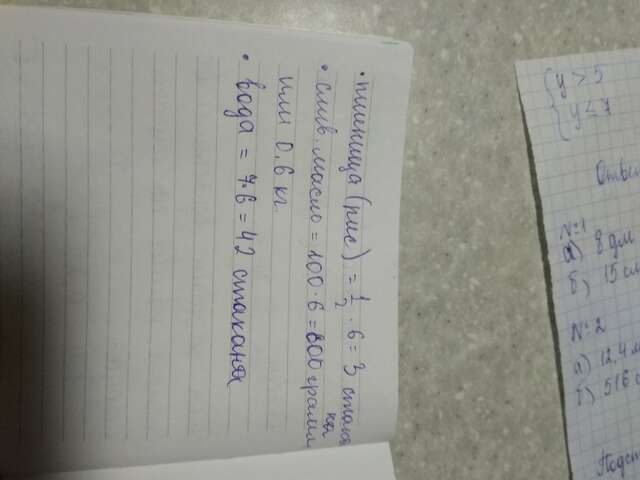 • пшеница (рис) = 1/2 · 6 = 3 стака
на
• слив. масло = 100 · 6 = 600 грамм
или 0,6 кг.
• вода = 7 · 6 = 42 стакана
{ y > 5
y ≤ 7
Ответ
№1
а) 8 дм
б) 15 см
№2
а) 12,4 м
б) 516
Подст